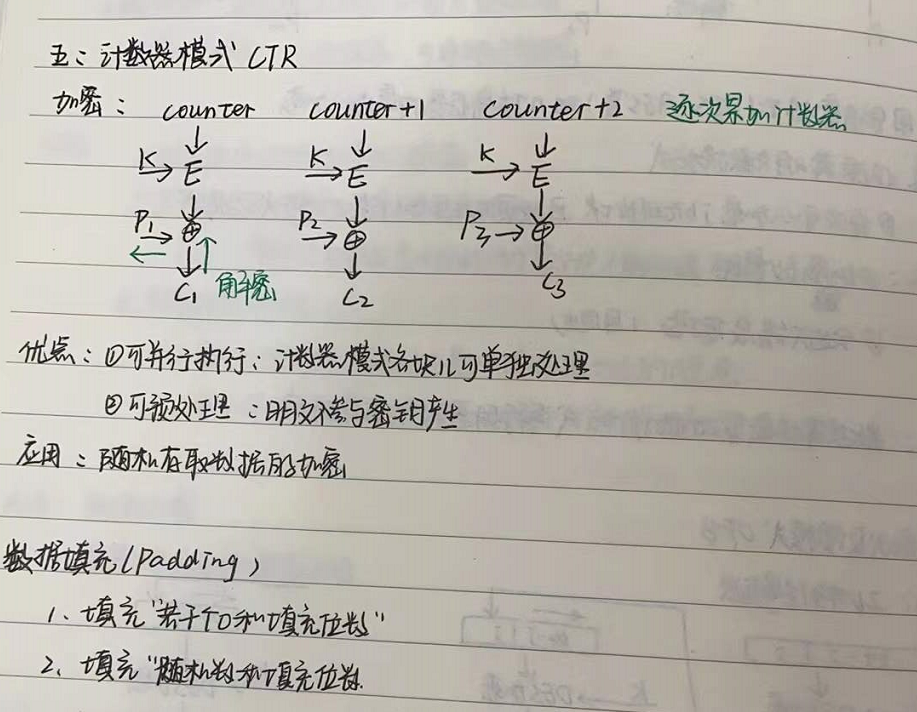 五：计数器模式 CTR
加密： counter counter+1 counter+2 逐次累加计数器
K E K E K E
P₁ ⊕ P₂ ⊕ P₃ ⊕
C₁ 解密 C₂ C₃
优点：①可并行执行：计数器模式各块儿可单独处理
②可预处理：明文不参与密钥产生
应用：随机存取数据的加密
数据填充(Padding)
1、填充“若干个0和填充位数”
2、填充“随机数和填充位数